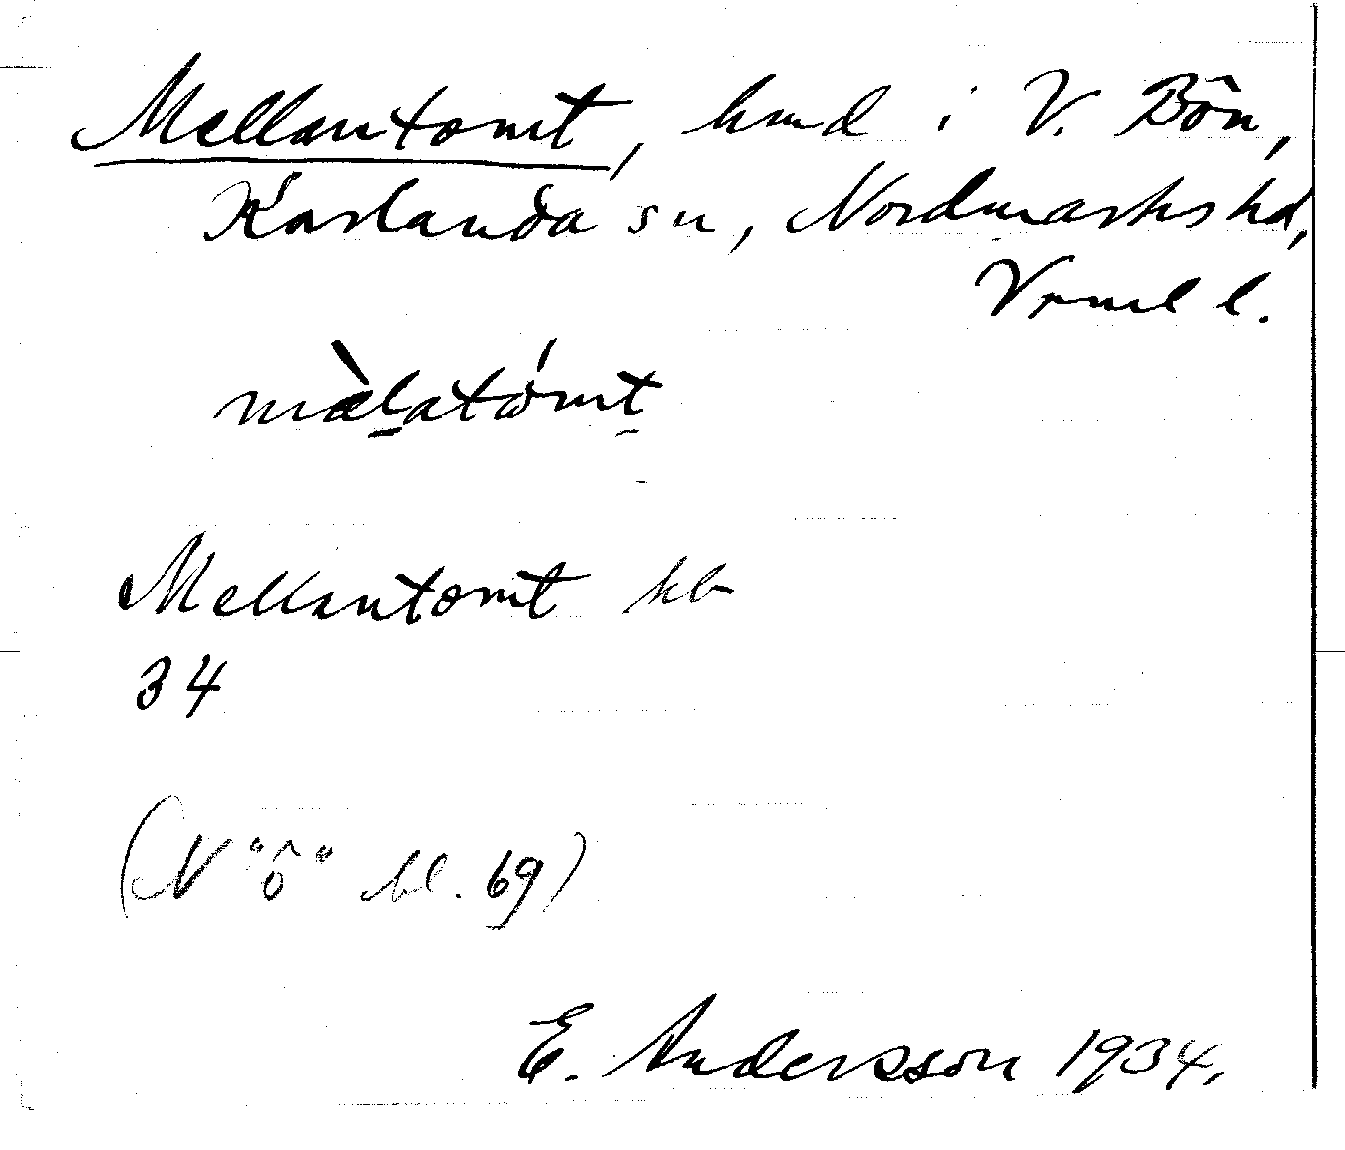 Mellantomt, hmd i V. Bön,
Karlanda sn, Nordmarks hd,
Vrml l.
mæ̀latómt
Mellantomt kb
34
(N "ô" bl. 69)
E. Andersson 1934.